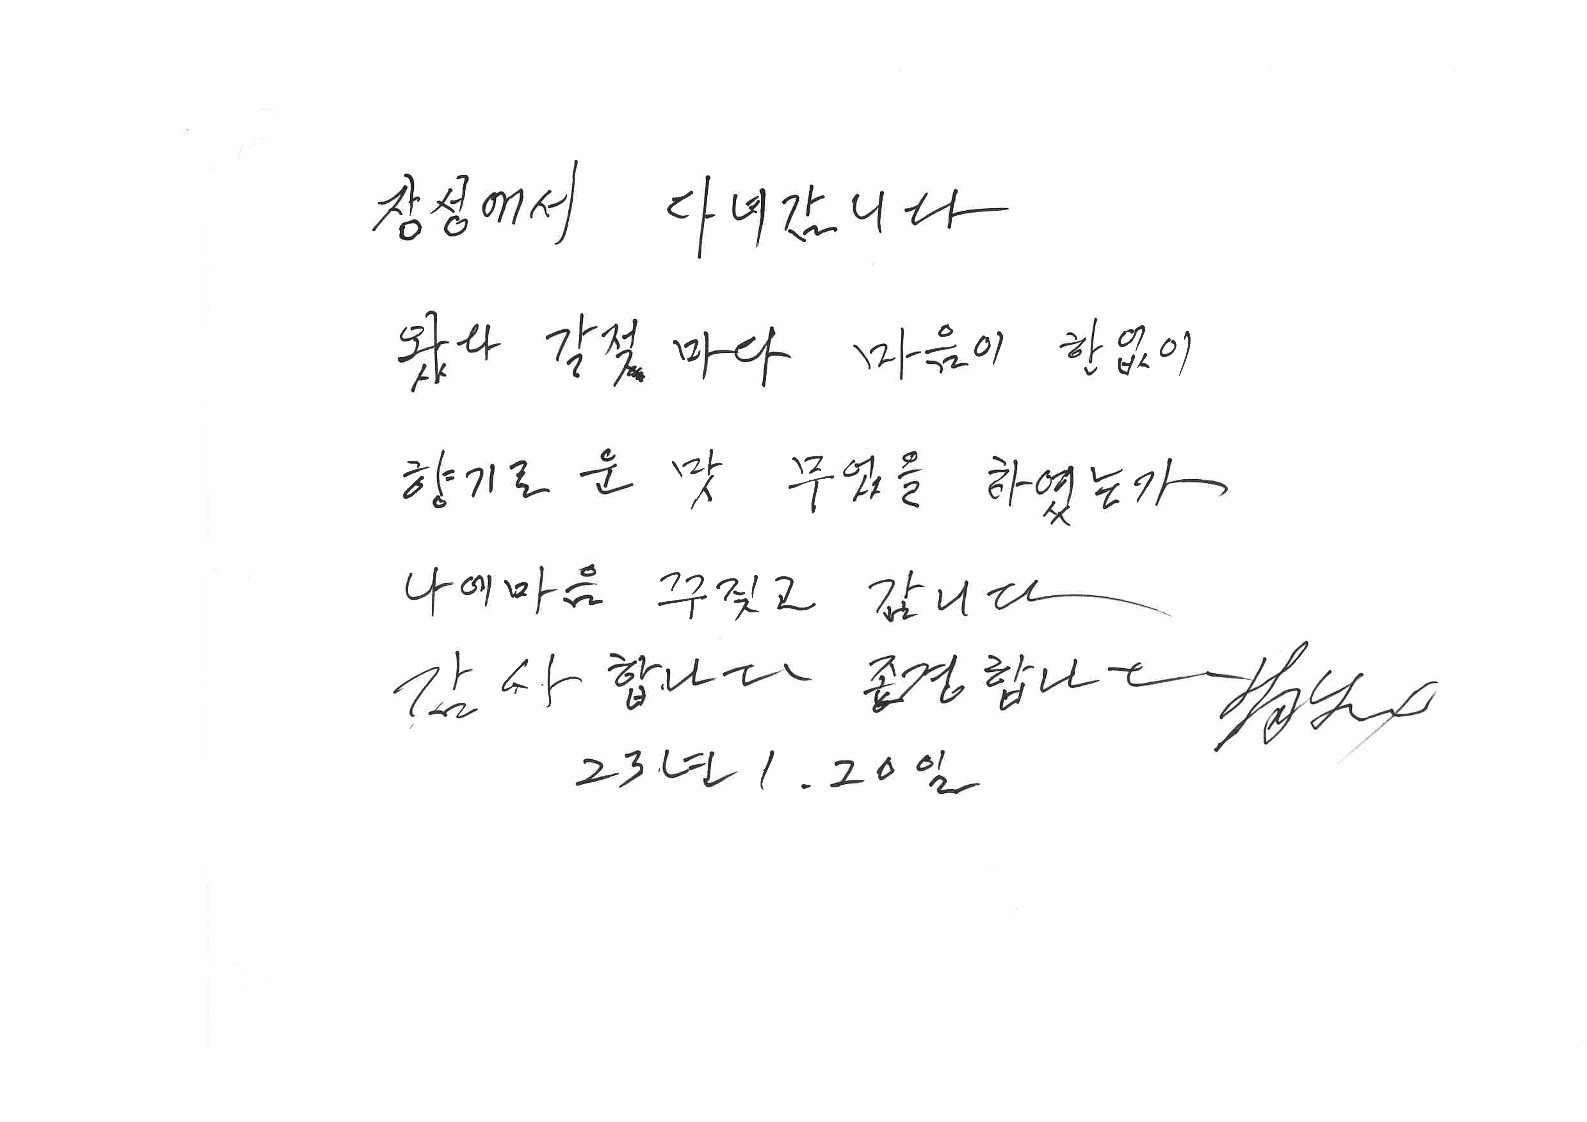 장성에서 다녀갑니다
왔다 갈젖마다 마음이 한없이
향기로운 맛 무엇을 하였는가
나에마음 꾸짖고 갑니다
감사합니다 존경합니다
23년 1.20일